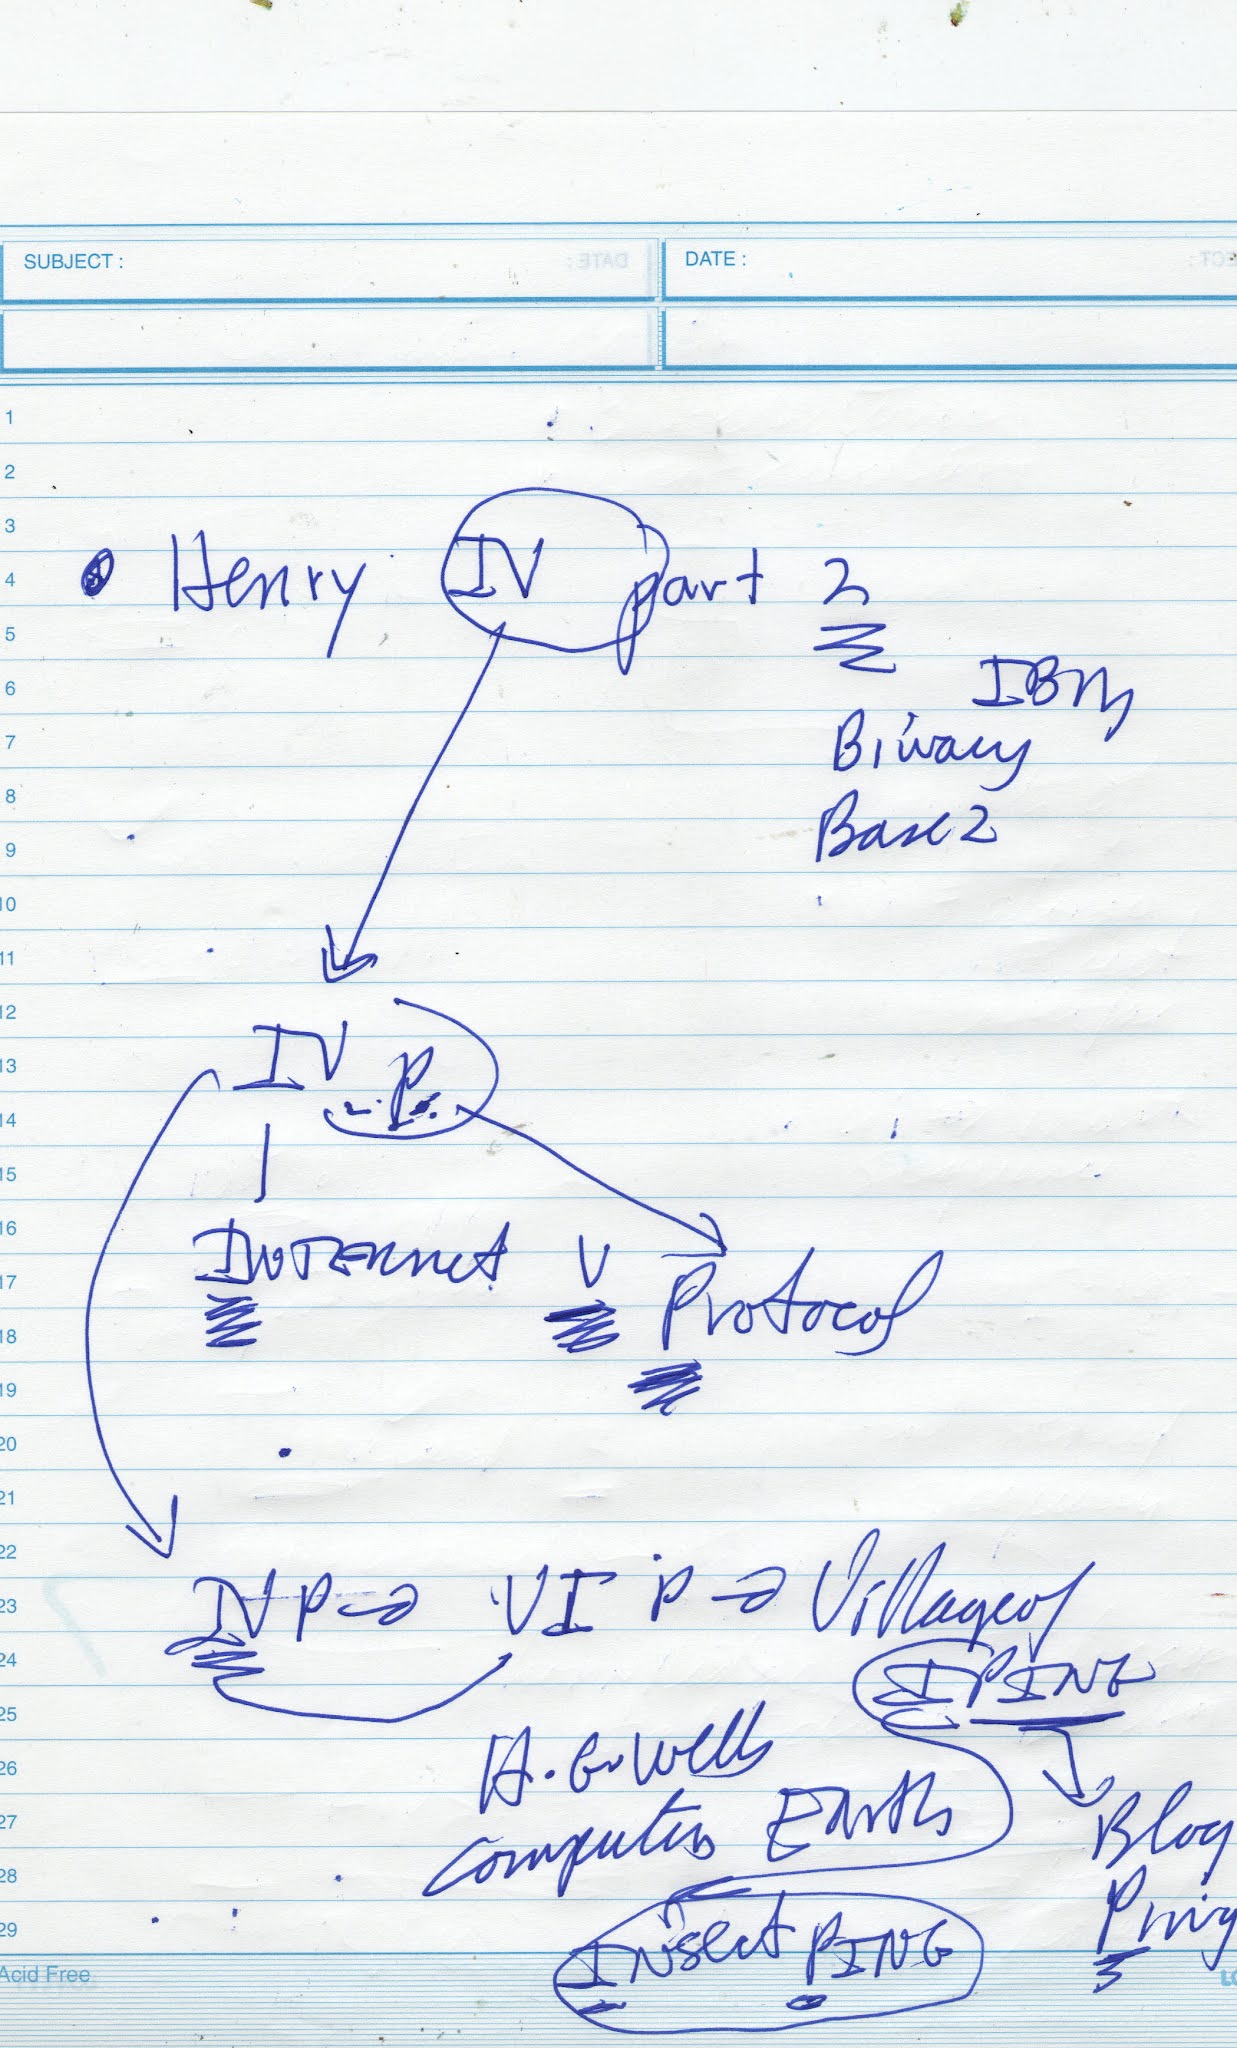 SUBJECT :
DATE :
1
2
3
4
5
6
7
8
9
10
11
12
13
14
15
16
17
18
19
20
21
22
23
24
25
26
27
28
29
• Henry IV part 2
IBM
Binary
Base 2
IV P.
Internet V Protocol
IV P → VI P → Village of
IPING
H. G. Wells
Computer Earth
Blog
Insect PING
Acid Free